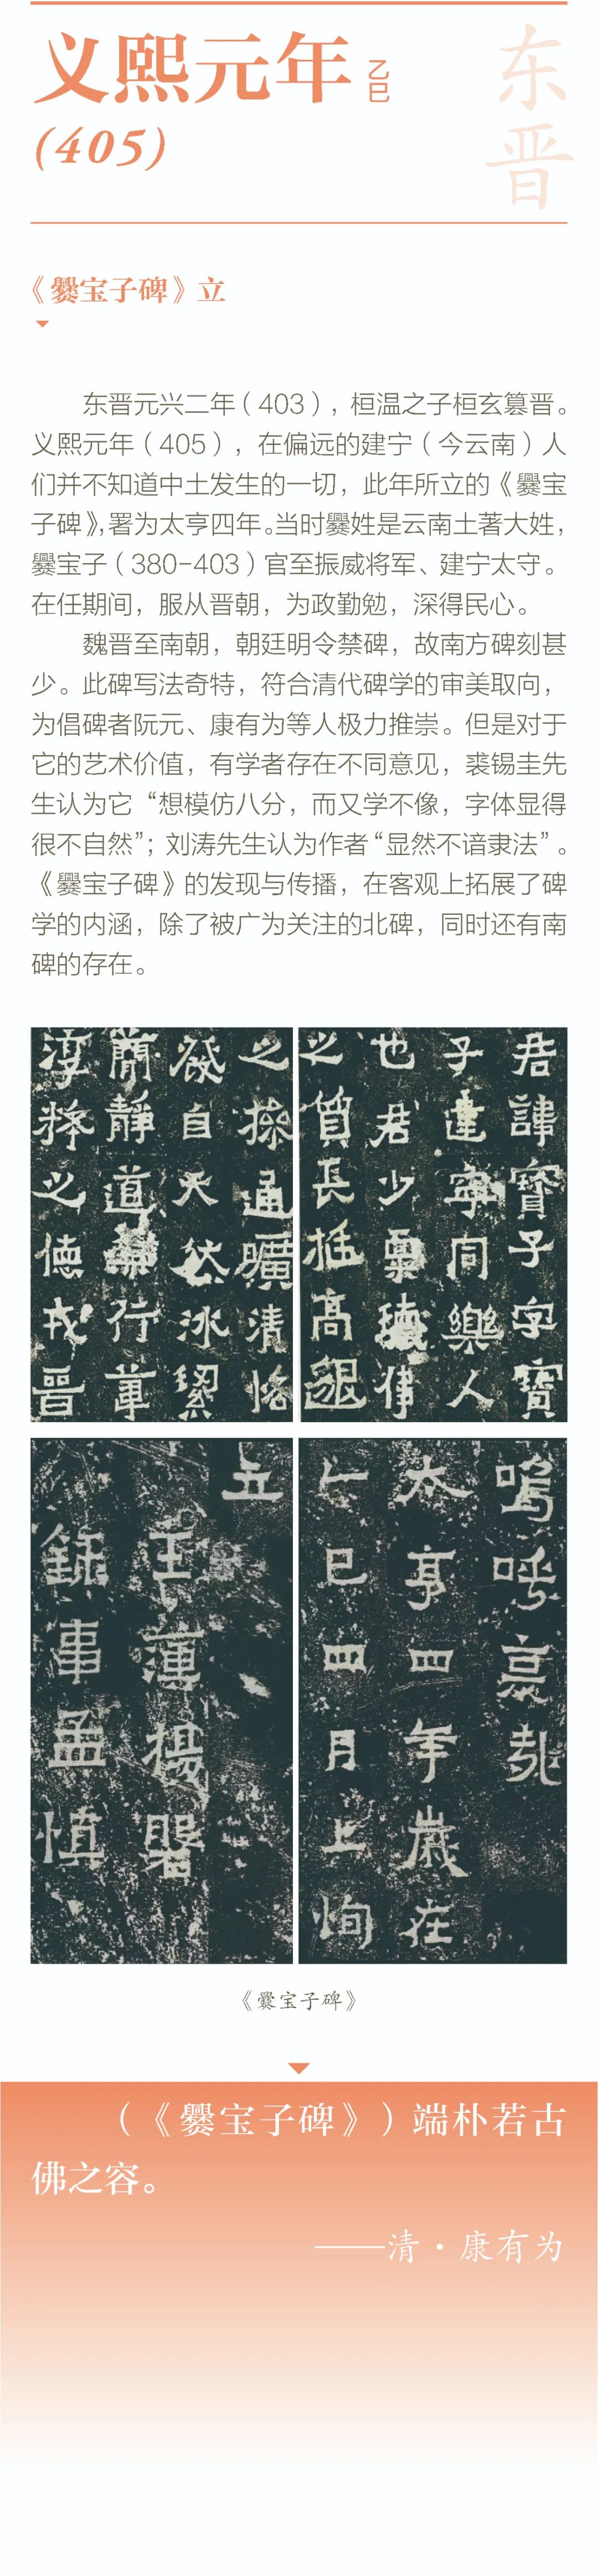 义熙元年 乙巳
(405)
东晋
《爨宝子碑》立
东晋元兴二年（403），桓温之子桓玄篡晋。
义熙元年（405），在偏远的建宁（今云南）人
们并不知道中土发生的一切，此年所立的《爨宝
子碑》，署为太亨四年。当时爨姓是云南土著大姓，
爨宝子（380-403）官至振威将军、建宁太守。
在任期间，服从晋朝，为政勤勉，深得民心。
魏晋至南朝，朝廷明令禁碑，故南方碑刻甚
少。此碑写法奇特，符合清代碑学的审美取向，
为倡碑者阮元、康有为等人极力推崇。但是对于
它的艺术价值，有学者存在不同意见，裘锡圭先
生认为它“想模仿八分，而又学不像，字体显得
很不自然”；刘涛先生认为作者“显然不谙隶法”。
《爨宝子碑》的发现与传播，在客观上拓展了碑
学的内涵，除了被广为关注的北碑，同时还有南
碑的存在。
君諱寶子字寶
子建寧同樂人
也君少稟瓌偉
之質長挺高邈
之操通曠清恪
發自天然冰絜
簡靜道兼行葦
淳粹之德戎晉
嗚呼哀哉
太亨四年歲在
乙巳四月上恂
立
主簿楊磐
錄事孟慎
《爨宝子碑》
（《爨宝子碑》）端朴若古
佛之容。
——清·康有为